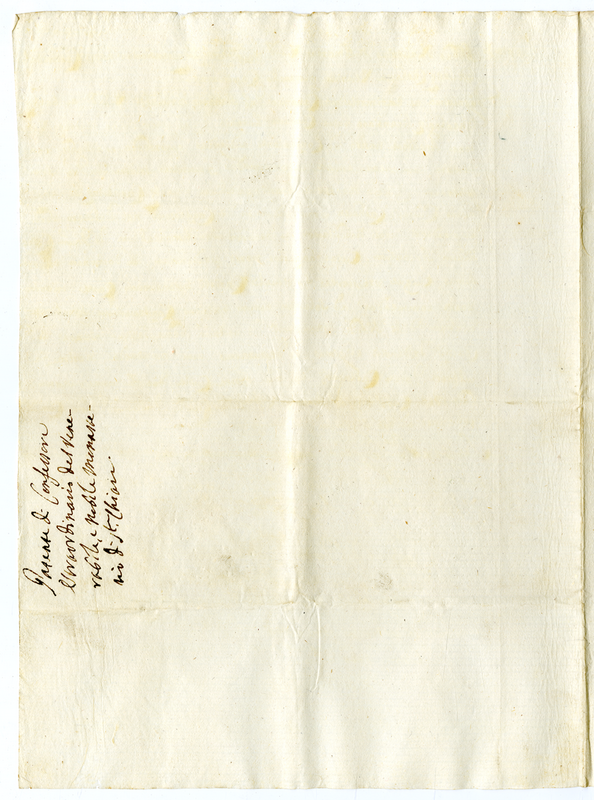 Patente di Confessore
Straordinario del Vene-
rabile, e Nobile Monaste-
rio di S. Chiara.